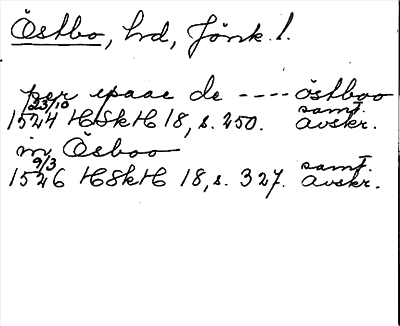 Östbo, hd, Jönk. l.
per epaae de ---- östboo
1524 23/10 HSkH 18, s. 250. samt. avskr.
in Ösboo
1526 9/3 HSkH 18, s. 327. samt. avskr.